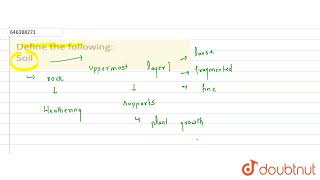 646388271
Define the following:
Soil
uppermost layer
loose
fragmented
fine
rock
weathering
supports
plant growth
doubtnut